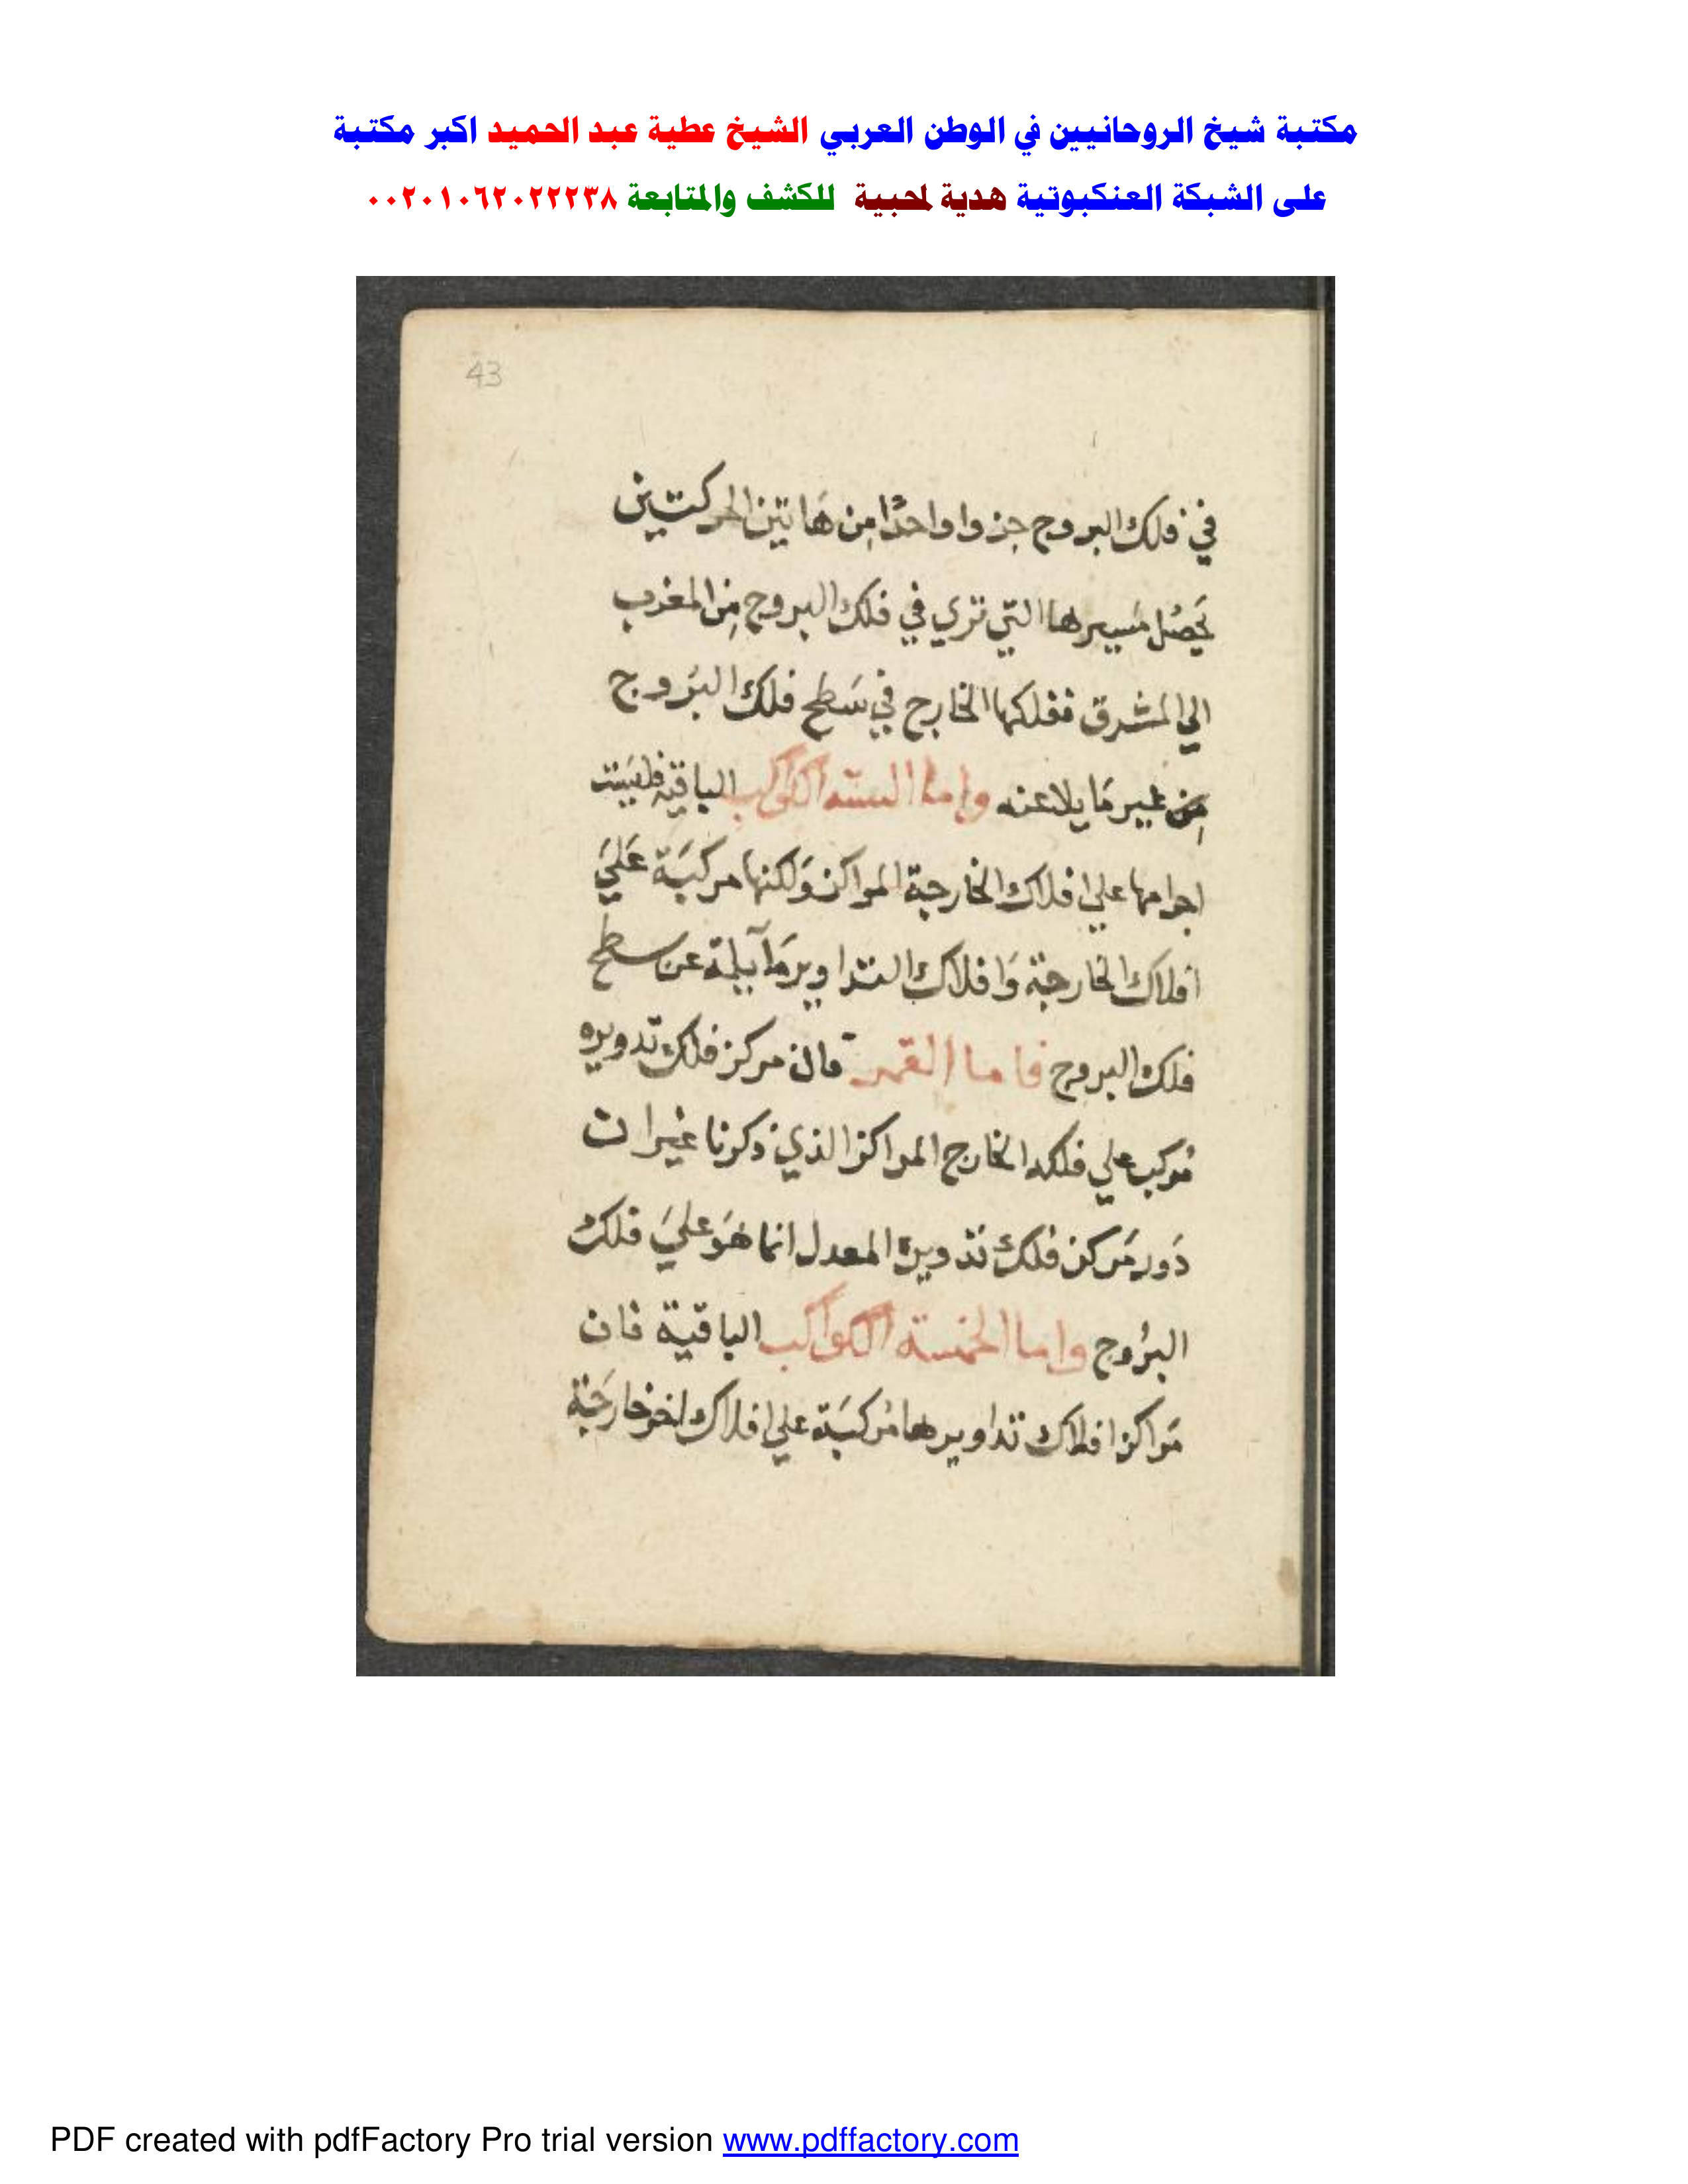 مكتبة شيخ الروحانيين في الوطن العربي الشيخ عطية عبد الحميد اكبر مكتبة
على الشبكة العنكبوتية هدية لمحبية للكشف والمتابعة ٠٠٢٠١٠٦٢٠٢٢٢٣٨
43
في فلك البروج جزوا واحدًا من هَاتين الحركتين
يَحصُل مَسيرها التي تري في فلك البروج مِن المغرب
الي المشرق ففلكها الخارج في سَطح فلك البرُوج
مِن غير مَا يلا عنه واما الستة الكواكب الباقية فليسَت
اجرامها علي افلاك الخارجة المراكز وَلكنها مركبَة عَليَ
افلاك الخارجَة وَافلاك التداوير مَآيلة عن سطح
فلك البروج فاما القمر فان مركز فلك تدويره
مُركب علي فلكه الخارج المراكز الذي ذكرنا غير ان
دَور مَركز فلك تدويره المعدل انما هُوَ عليَ فلك
البرُوج واما الخمسة الكواكب الباقية فان
مَراكز افلاك تداويرها مُركبَة علي افلاك اخر خارجَة
PDF created with pdfFactory Pro trial version www.pdffactory.com